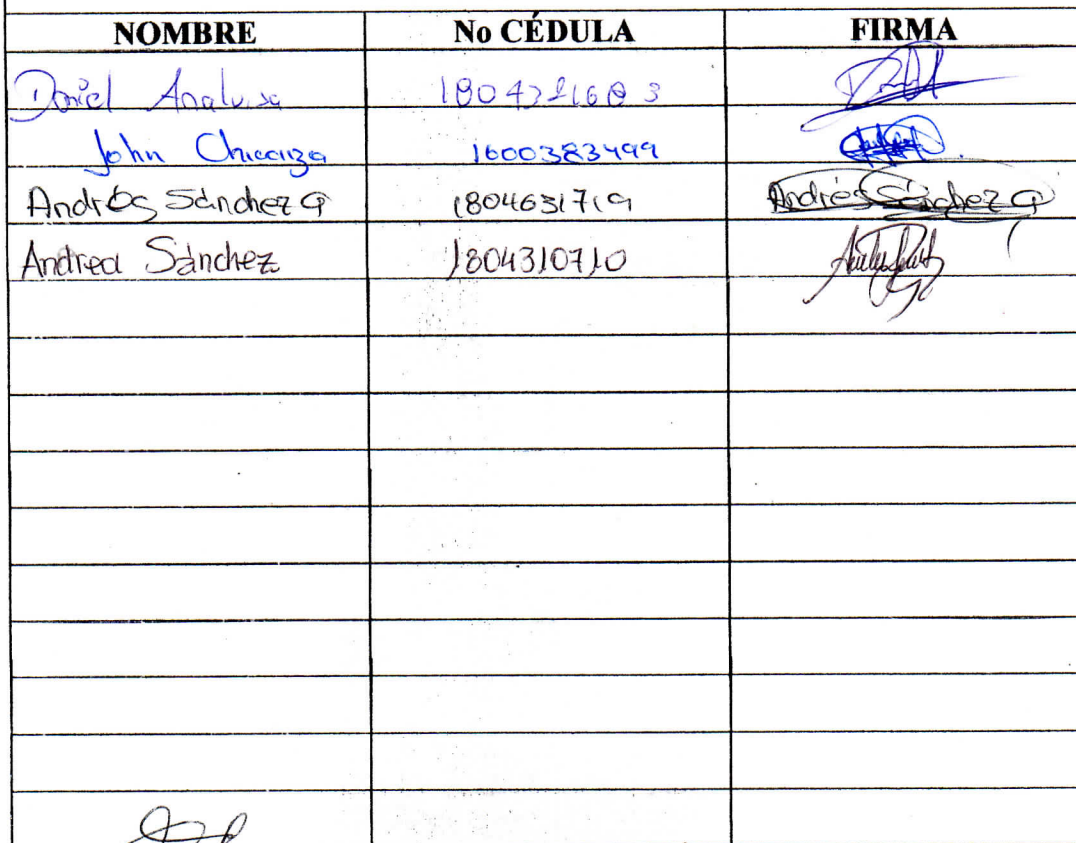 NOMBRE No CÉDULA FIRMA
Daniel Analuisa
John Chicaiza 1600383499
Andrés Sánchez G 1804631719 Andrés Sánchez G
Andrea Sánchez 1804310710